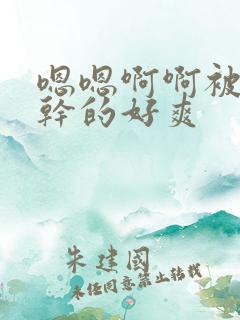 嗯嗯啊啊被
幹的好爽
朱建國
未经同意禁止转载